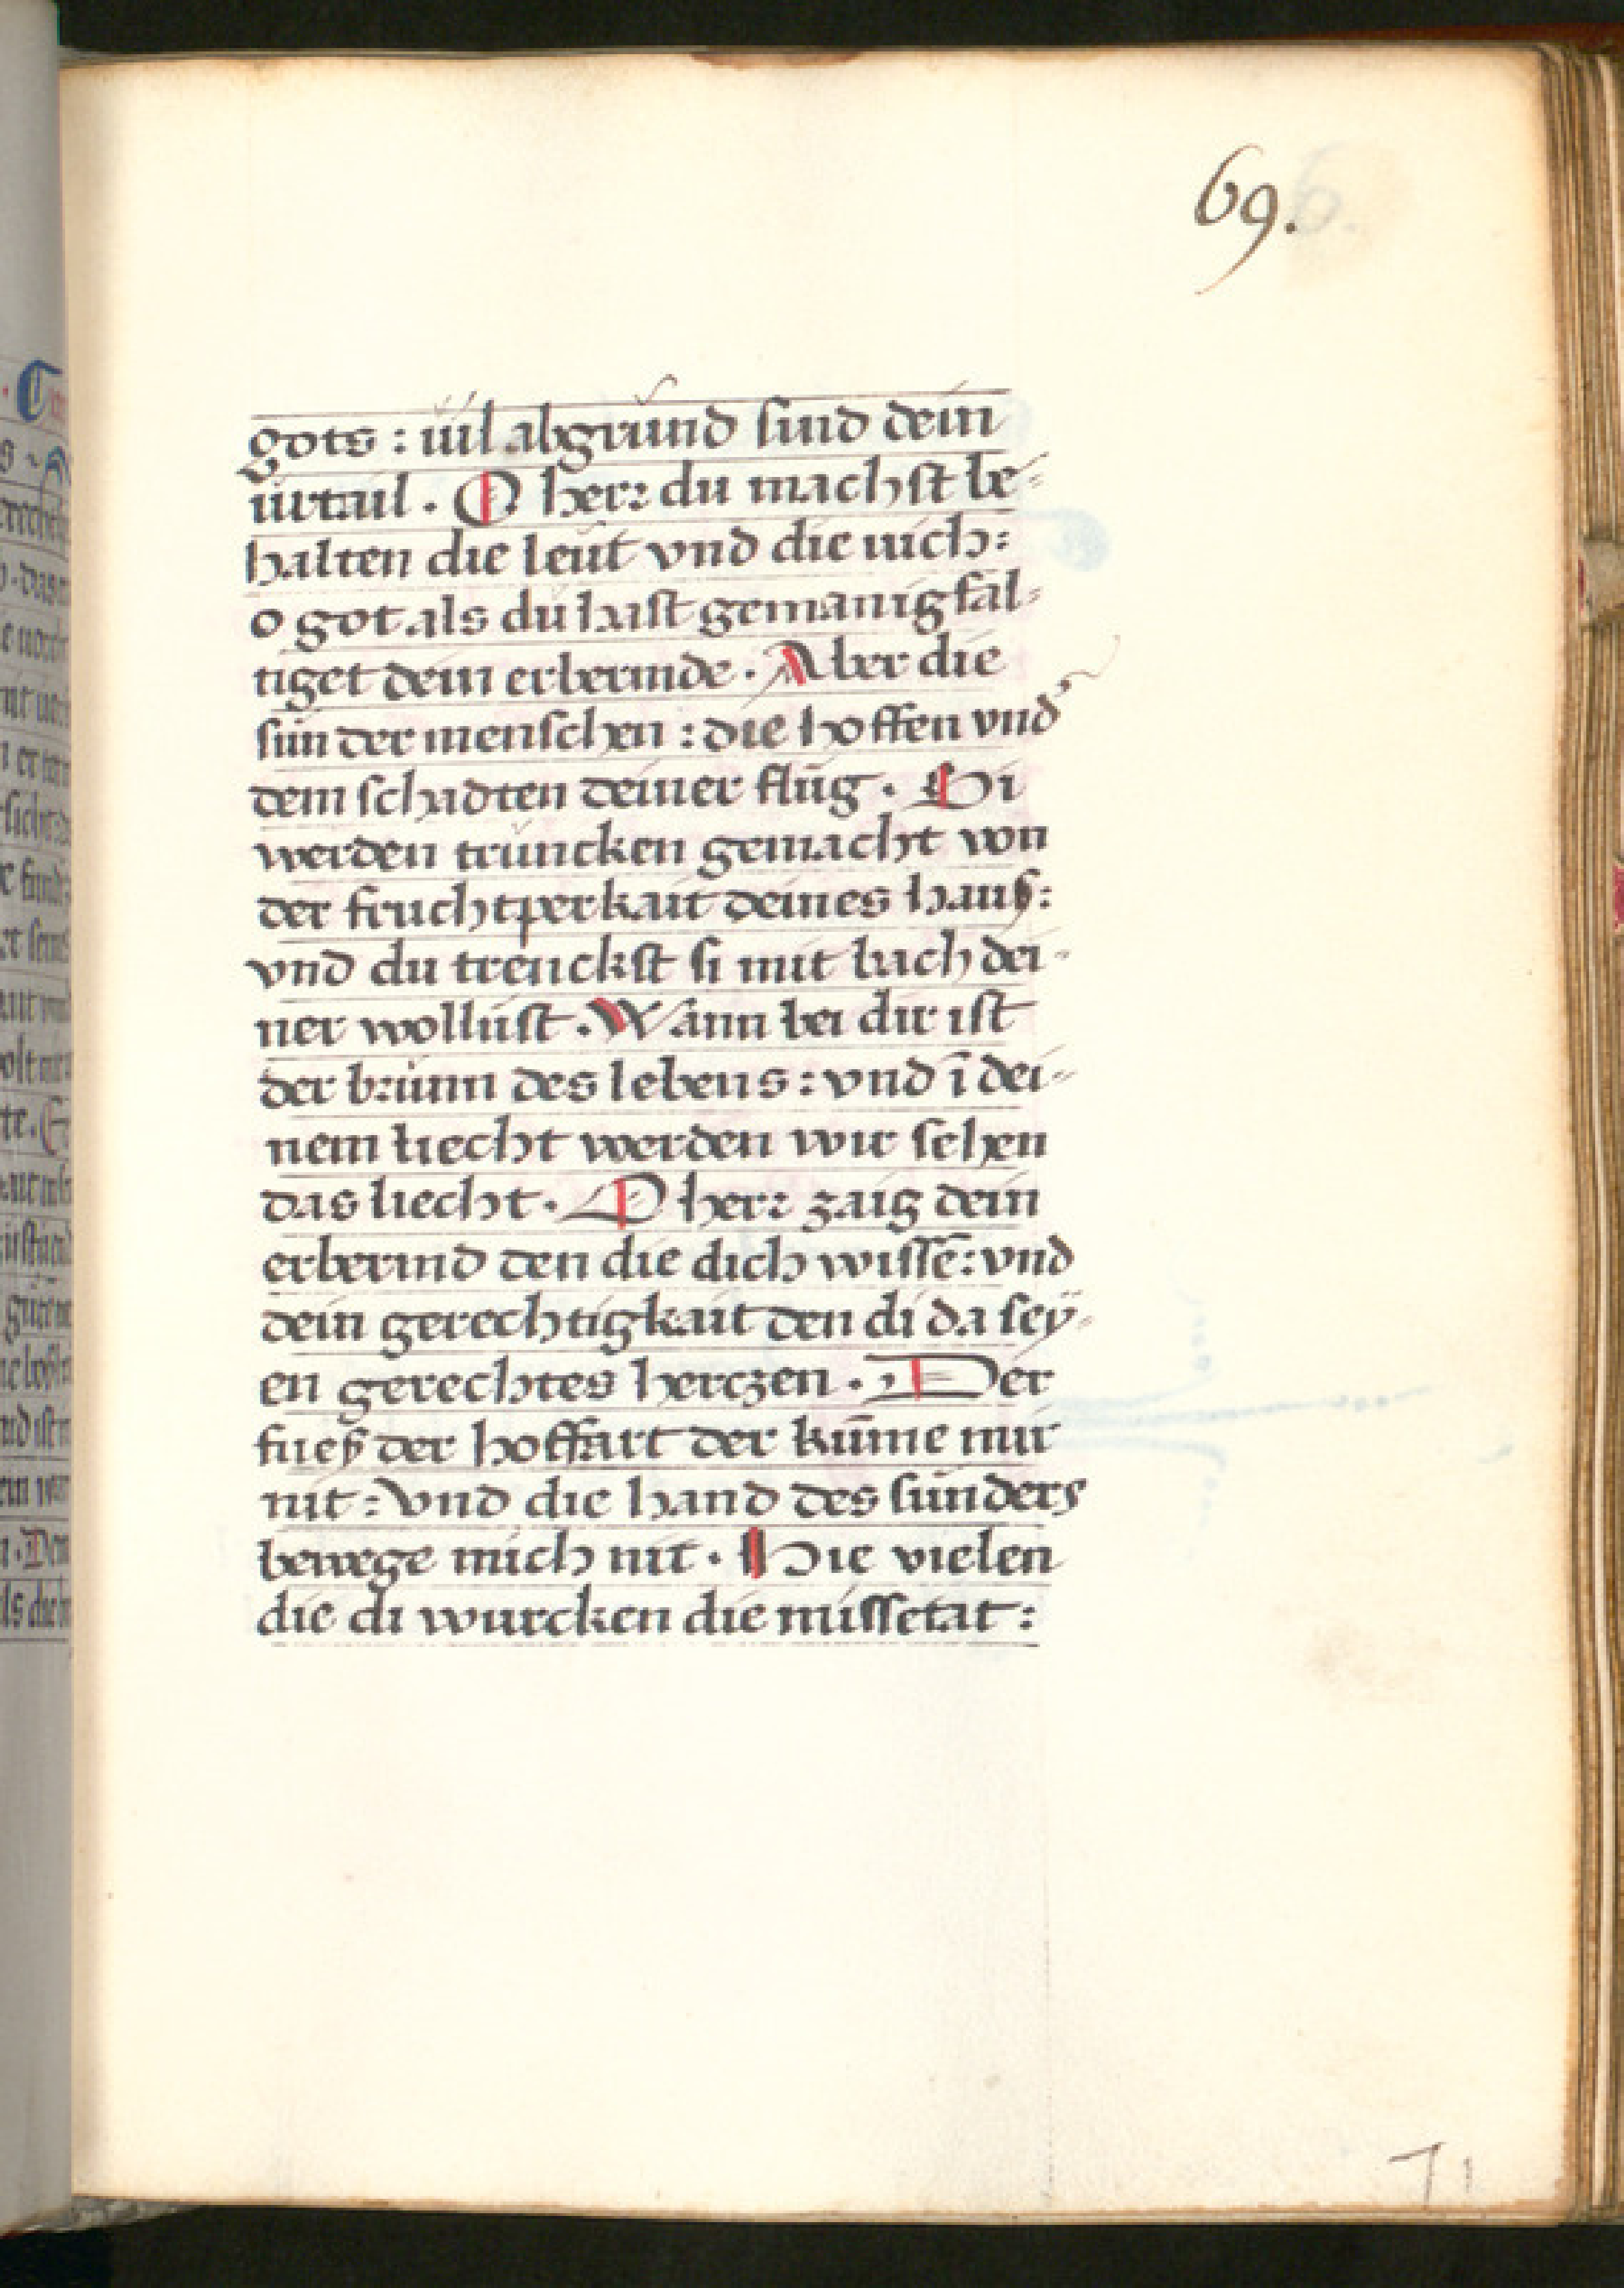 69.
gots : uil abgrund sind dein
urtail . O herr du machst be-
halten die leut vnd die uich:
o got als du hast gemanigfal-
tiget dein erbermde . Aber die
sun der menschen : die hoffen vnd
dem schadten deiner flug . Si
werden truncken gemacht von
der fruchtperkait deines hauß:
vnd du trenckst si mit bach dei-
ner wollust . Wann bei dir ist
der brunn des lebens : vnd ī dei-
nem liecht werden wir sehen
das liecht . O herr zaig dein
erbermd den die dich wissē: vnd
dein gerechtigkait den di da sey-
en gerechtes herczen . Der
fueß der hoffart der kūme mir
nit : Vnd die hand des sunders
bewege mich nit . Hie vielen
die di wurcken die missetat :
71